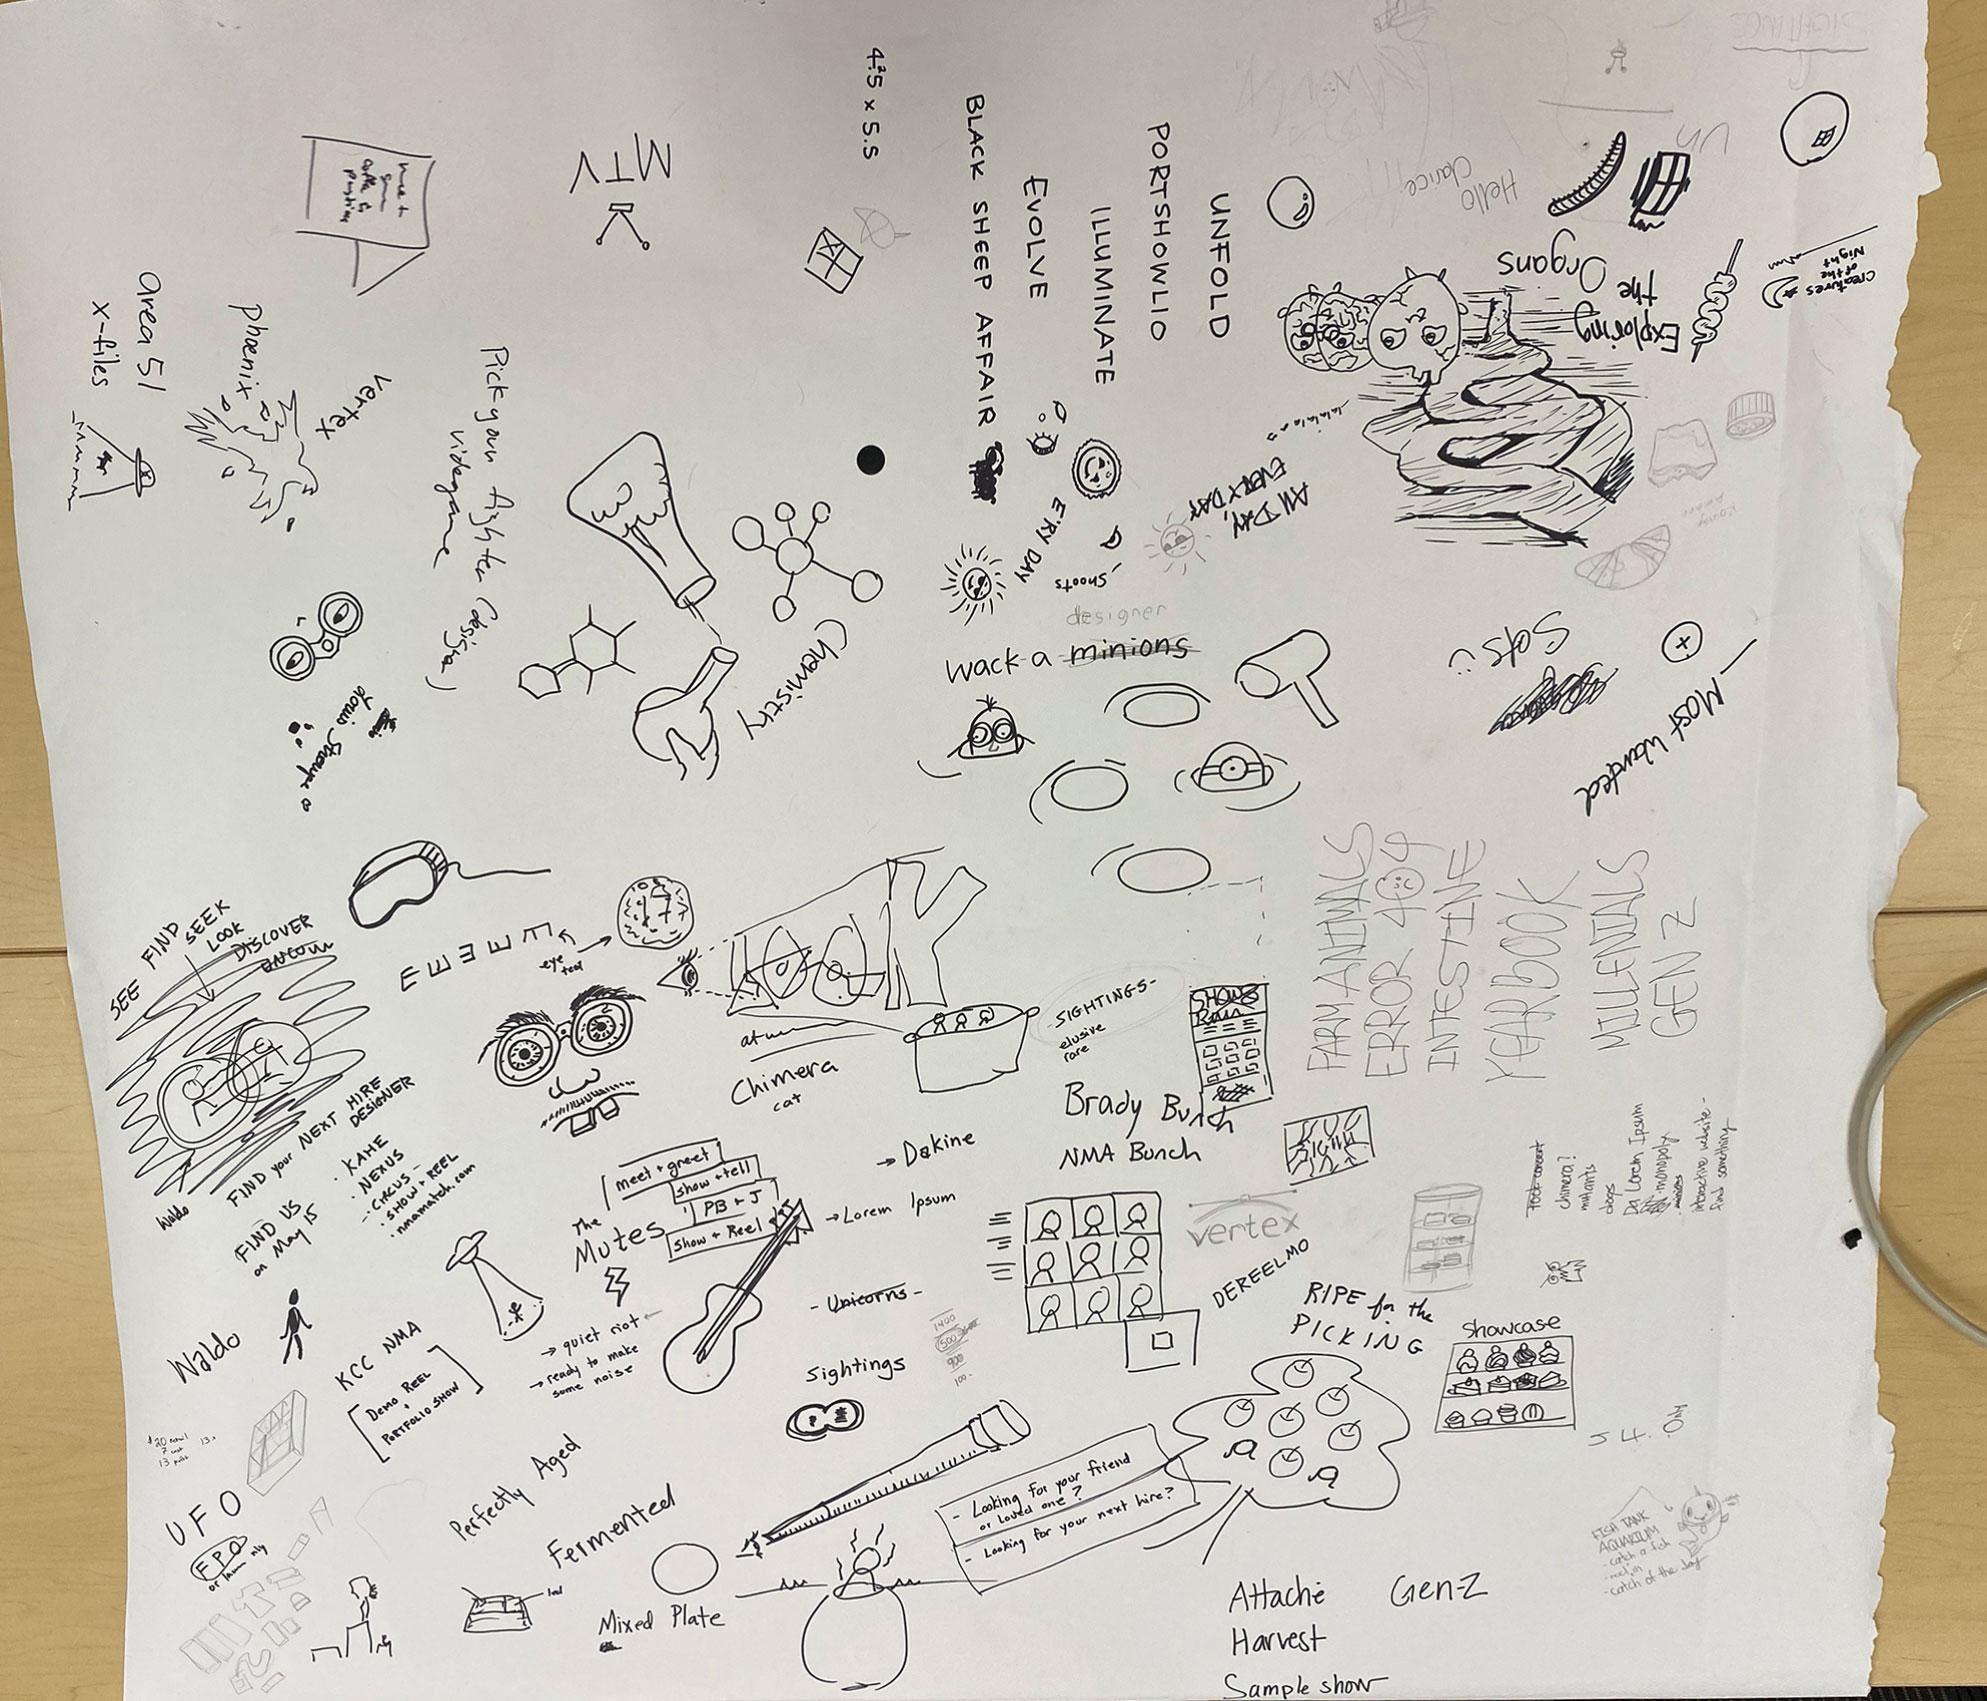 4.25 x 5.5
BLACK SHEEP AFFAIR
EVOLVE
ILLUMINATE
PORTSHOWLIO
UNFOLD
MTV
Hello
Clarice
Exploring
the
Organs
Creatures
of the
Night
area 51
x-files
phoenix
vertex
Pick your fighter (design)
videogame
E'RY DAY
All DAY,
EVERY DAY
Snoots
designer
Wack-a minions
Chemistry
Sots
Most Wanted
SEE
FIND
SEEK
LOOK
DISCOVER
E E E E E
eye
test
FARM ANIMALS
ERROR 404
INTESTINE
YEARBOOK
MILLENIALS
GEN Z
-SIGHTINGS-
elusive
rare
SHOWS
Chimera
cat
Brady Bunch
NMA Bunch
FIND your NEXT HIRE
DESIGNER
Waldo
FIND US
on May 15
· KAHE
· NEXUS
- CIRCUS -
· SHOW + REEL
· nmamatch.com
The
Mutes
meet + greet
show + tell
PB + J
Show + Reel
→ Dakine
→ Lorem Ipsum
→ quiet riot ←
→ ready to make
some noise
- Unicorns -
Sightings
1400
1500
900
100-
vertex
DEREELMO
RIPE for the
PICKING
Showcase
chimera?
mutants
dogs
Da Lorem Ipsum
monopoly
interactive website -
find something
Waldo
KCC NMA
Demo REEL
+
PORTFOLIO SHOW
UFO
FPO
Perfectly Aged
Fermented
Mixed Plate
- Looking for your friend
or loved one?
- Looking for your next hire?
FISH TANK
AQUARIUM
- catch a fish
- reel in
- catch of the day
Attaché
Gen-Z
Harvest
Sample show